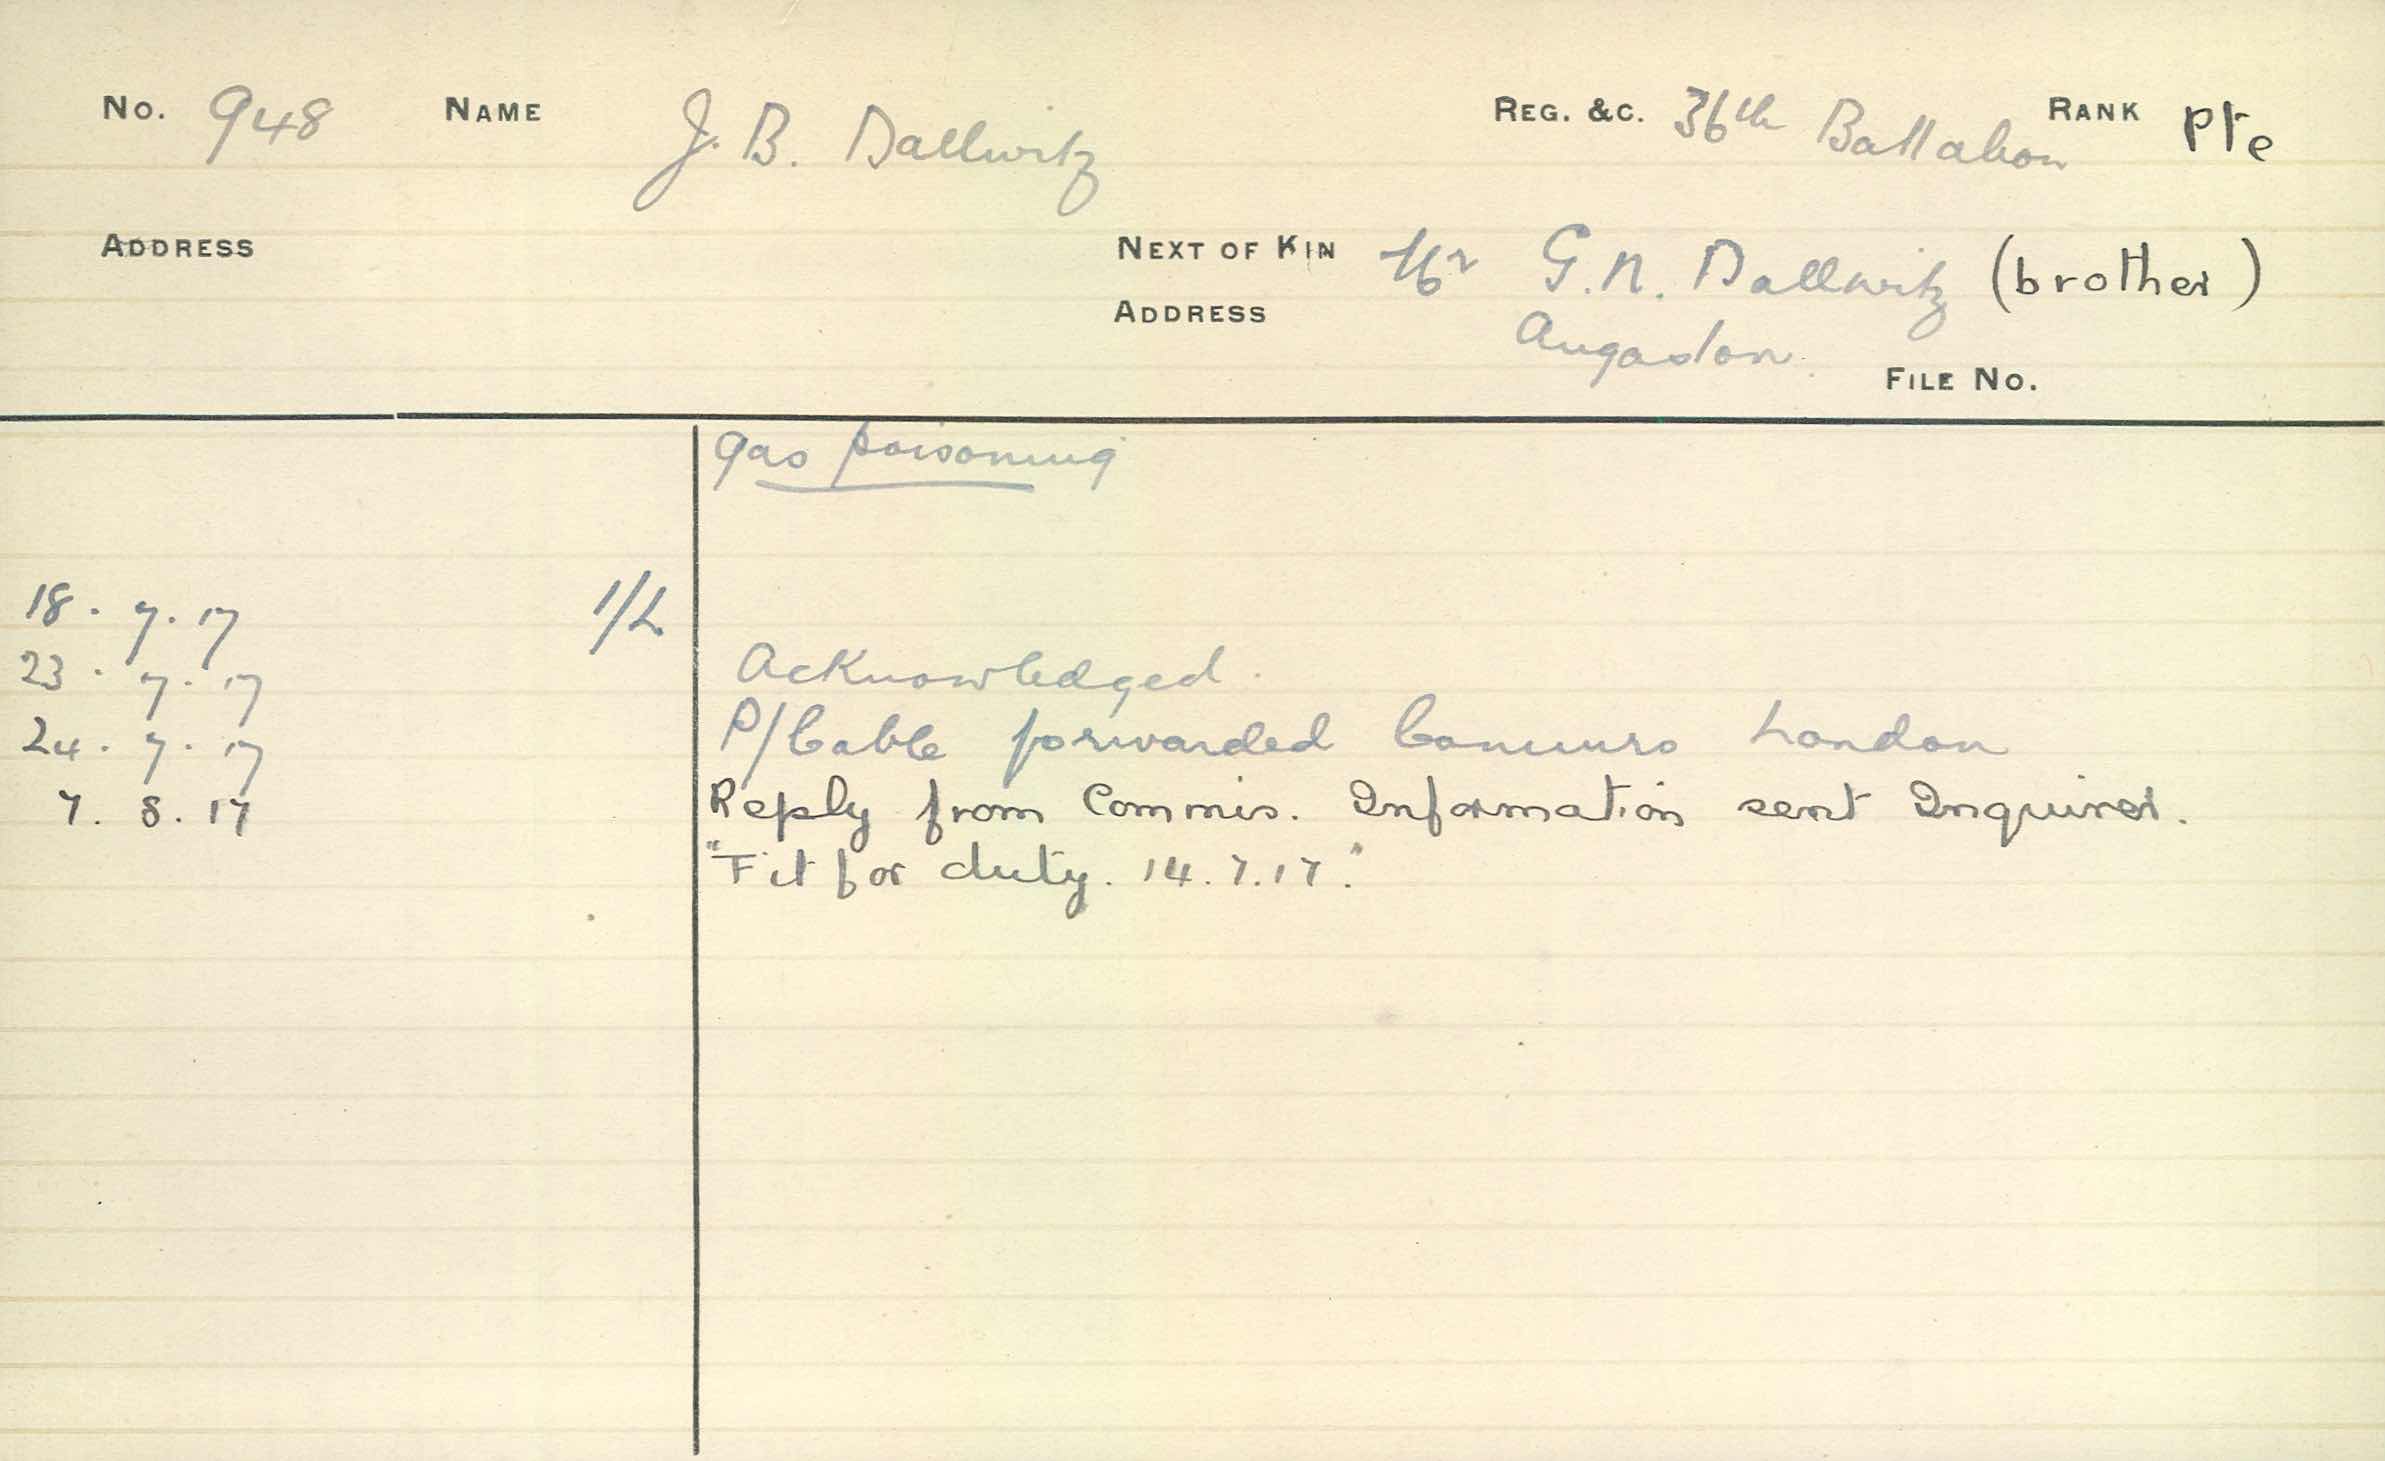 No. 948 NAME J. B. Dallwitz REG. &C. 36th Battalion RANK Pte
ADDRESS NEXT OF KIN Mr G. N. Dallwitz (brother)
ADDRESS Angaston.
FILE No.
gas poisoning
18. 7. 17 1/L
23. 7. 17 Acknowledged.
24. 7. 17 P/Cable forwarded Commrs London
7. 8. 17 Reply from Commis. Information sent Inquirer.
"Fit for duty. 14.7.17."